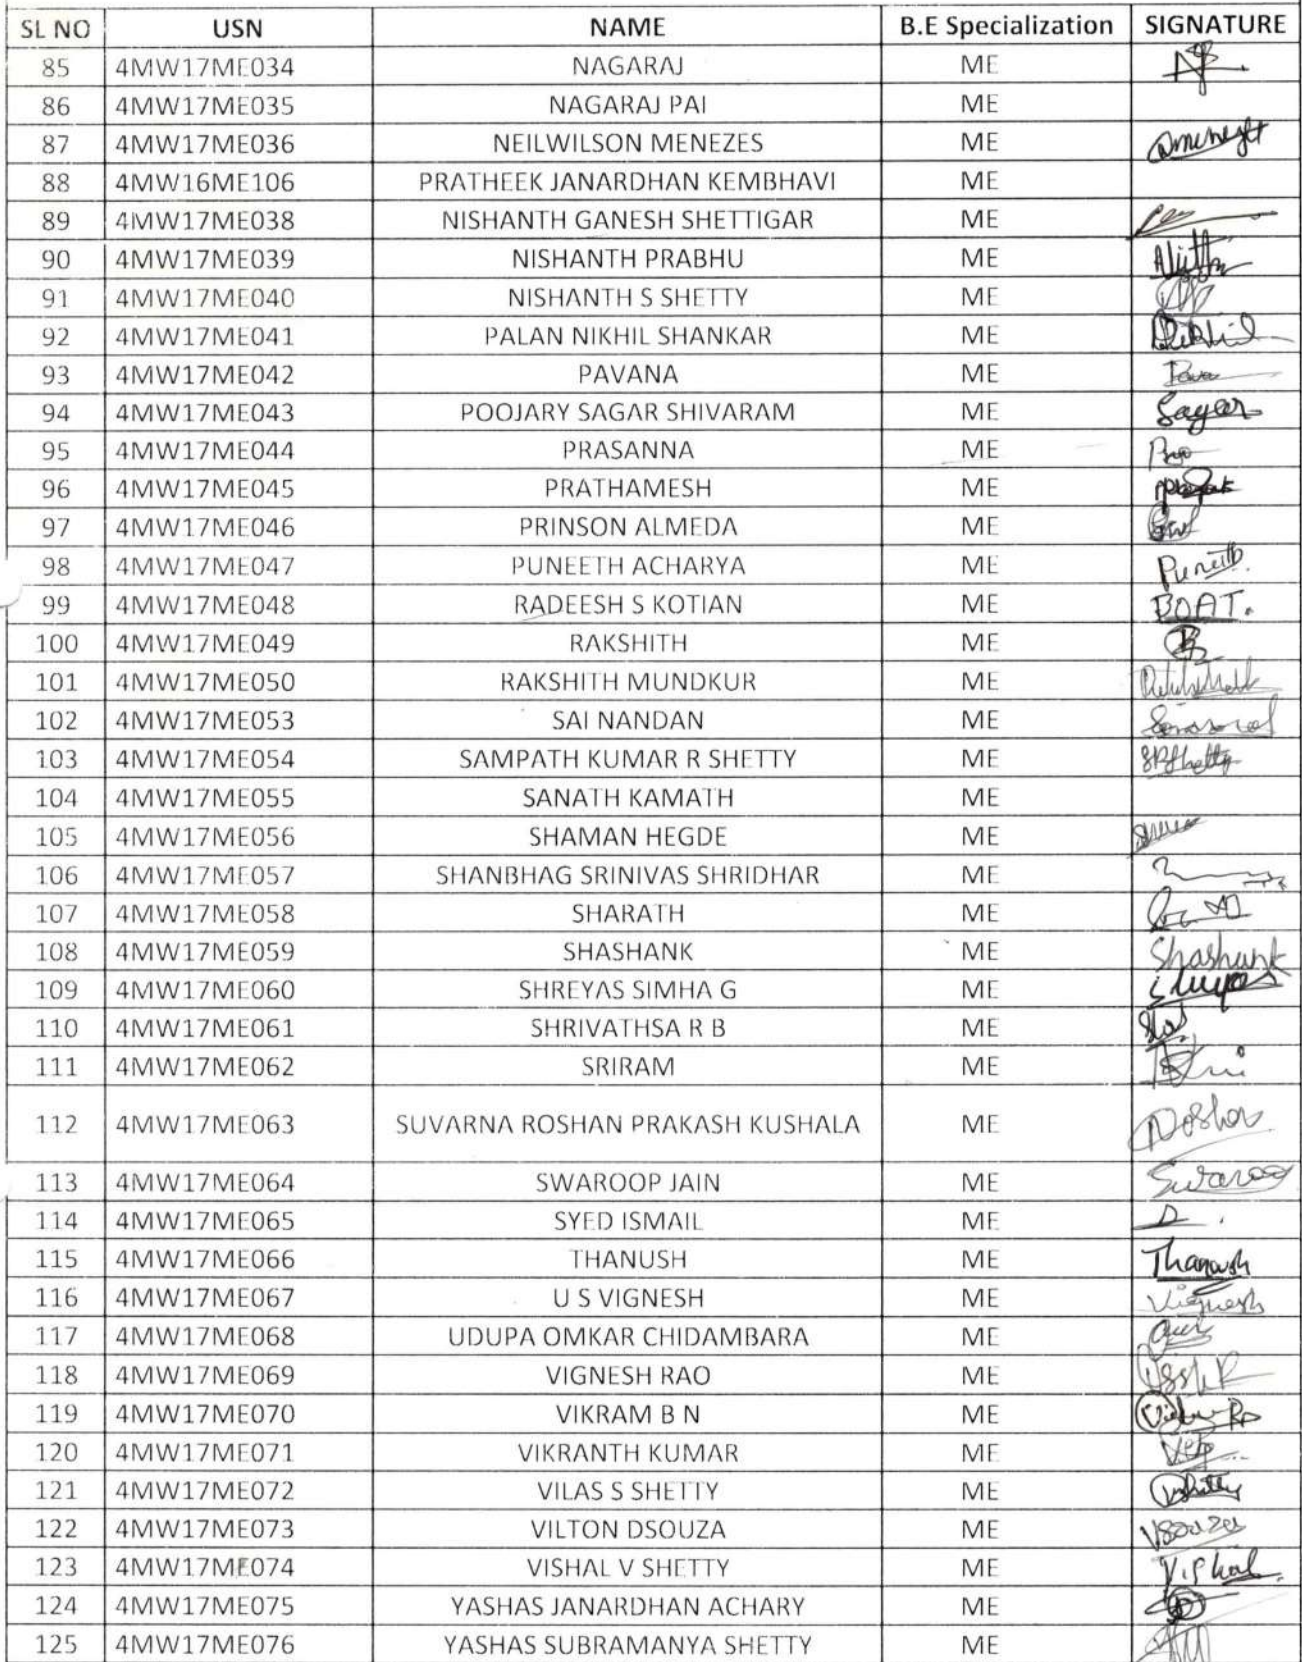 SL NO USN NAME B.E Specialization SIGNATURE
85 4MW17ME034 NAGARAJ ME
86 4MW17ME035 NAGARAJ PAI ME
87 4MW17ME036 NEILWILSON MENEZES ME
88 4MW16ME106 PRATHEEK JANARDHAN KEMBHAVI ME
89 4MW17ME038 NISHANTH GANESH SHETTIGAR ME
90 4MW17ME039 NISHANTH PRABHU ME
91 4MW17ME040 NISHANTH S SHETTY ME
92 4MW17ME041 PALAN NIKHIL SHANKAR ME
93 4MW17ME042 PAVANA ME
94 4MW17ME043 POOJARY SAGAR SHIVARAM ME Sagar
95 4MW17ME044 PRASANNA ME
96 4MW17ME045 PRATHAMESH ME
97 4MW17ME046 PRINSON ALMEDA ME
98 4MW17ME047 PUNEETH ACHARYA ME Puneeth
99 4MW17ME048 RADEESH S KOTIAN ME BOAT.
100 4MW17ME049 RAKSHITH ME
101 4MW17ME050 RAKSHITH MUNDKUR ME
102 4MW17ME053 SAI NANDAN ME
103 4MW17ME054 SAMPATH KUMAR R SHETTY ME SRShetty
104 4MW17ME055 SANATH KAMATH ME
105 4MW17ME056 SHAMAN HEGDE ME
106 4MW17ME057 SHANBHAG SRINIVAS SHRIDHAR ME
107 4MW17ME058 SHARATH ME
108 4MW17ME059 SHASHANK ME Shashank
109 4MW17ME060 SHREYAS SIMHA G ME
110 4MW17ME061 SHRIVATHSA R B ME
111 4MW17ME062 SRIRAM ME
112 4MW17ME063 SUVARNA ROSHAN PRAKASH KUSHALA ME
113 4MW17ME064 SWAROOP JAIN ME
114 4MW17ME065 SYED ISMAIL ME
115 4MW17ME066 THANUSH ME Thanush
116 4MW17ME067 U S VIGNESH ME Vignesh
117 4MW17ME068 UDUPA OMKAR CHIDAMBARA ME
118 4MW17ME069 VIGNESH RAO ME
119 4MW17ME070 VIKRAM B N ME
120 4MW17ME071 VIKRANTH KUMAR ME
121 4MW17ME072 VILAS S SHETTY ME
122 4MW17ME073 VILTON DSOUZA ME
123 4MW17ME074 VISHAL V SHETTY ME Vishal
124 4MW17ME075 YASHAS JANARDHAN ACHARY ME
125 4MW17ME076 YASHAS SUBRAMANYA SHETTY ME